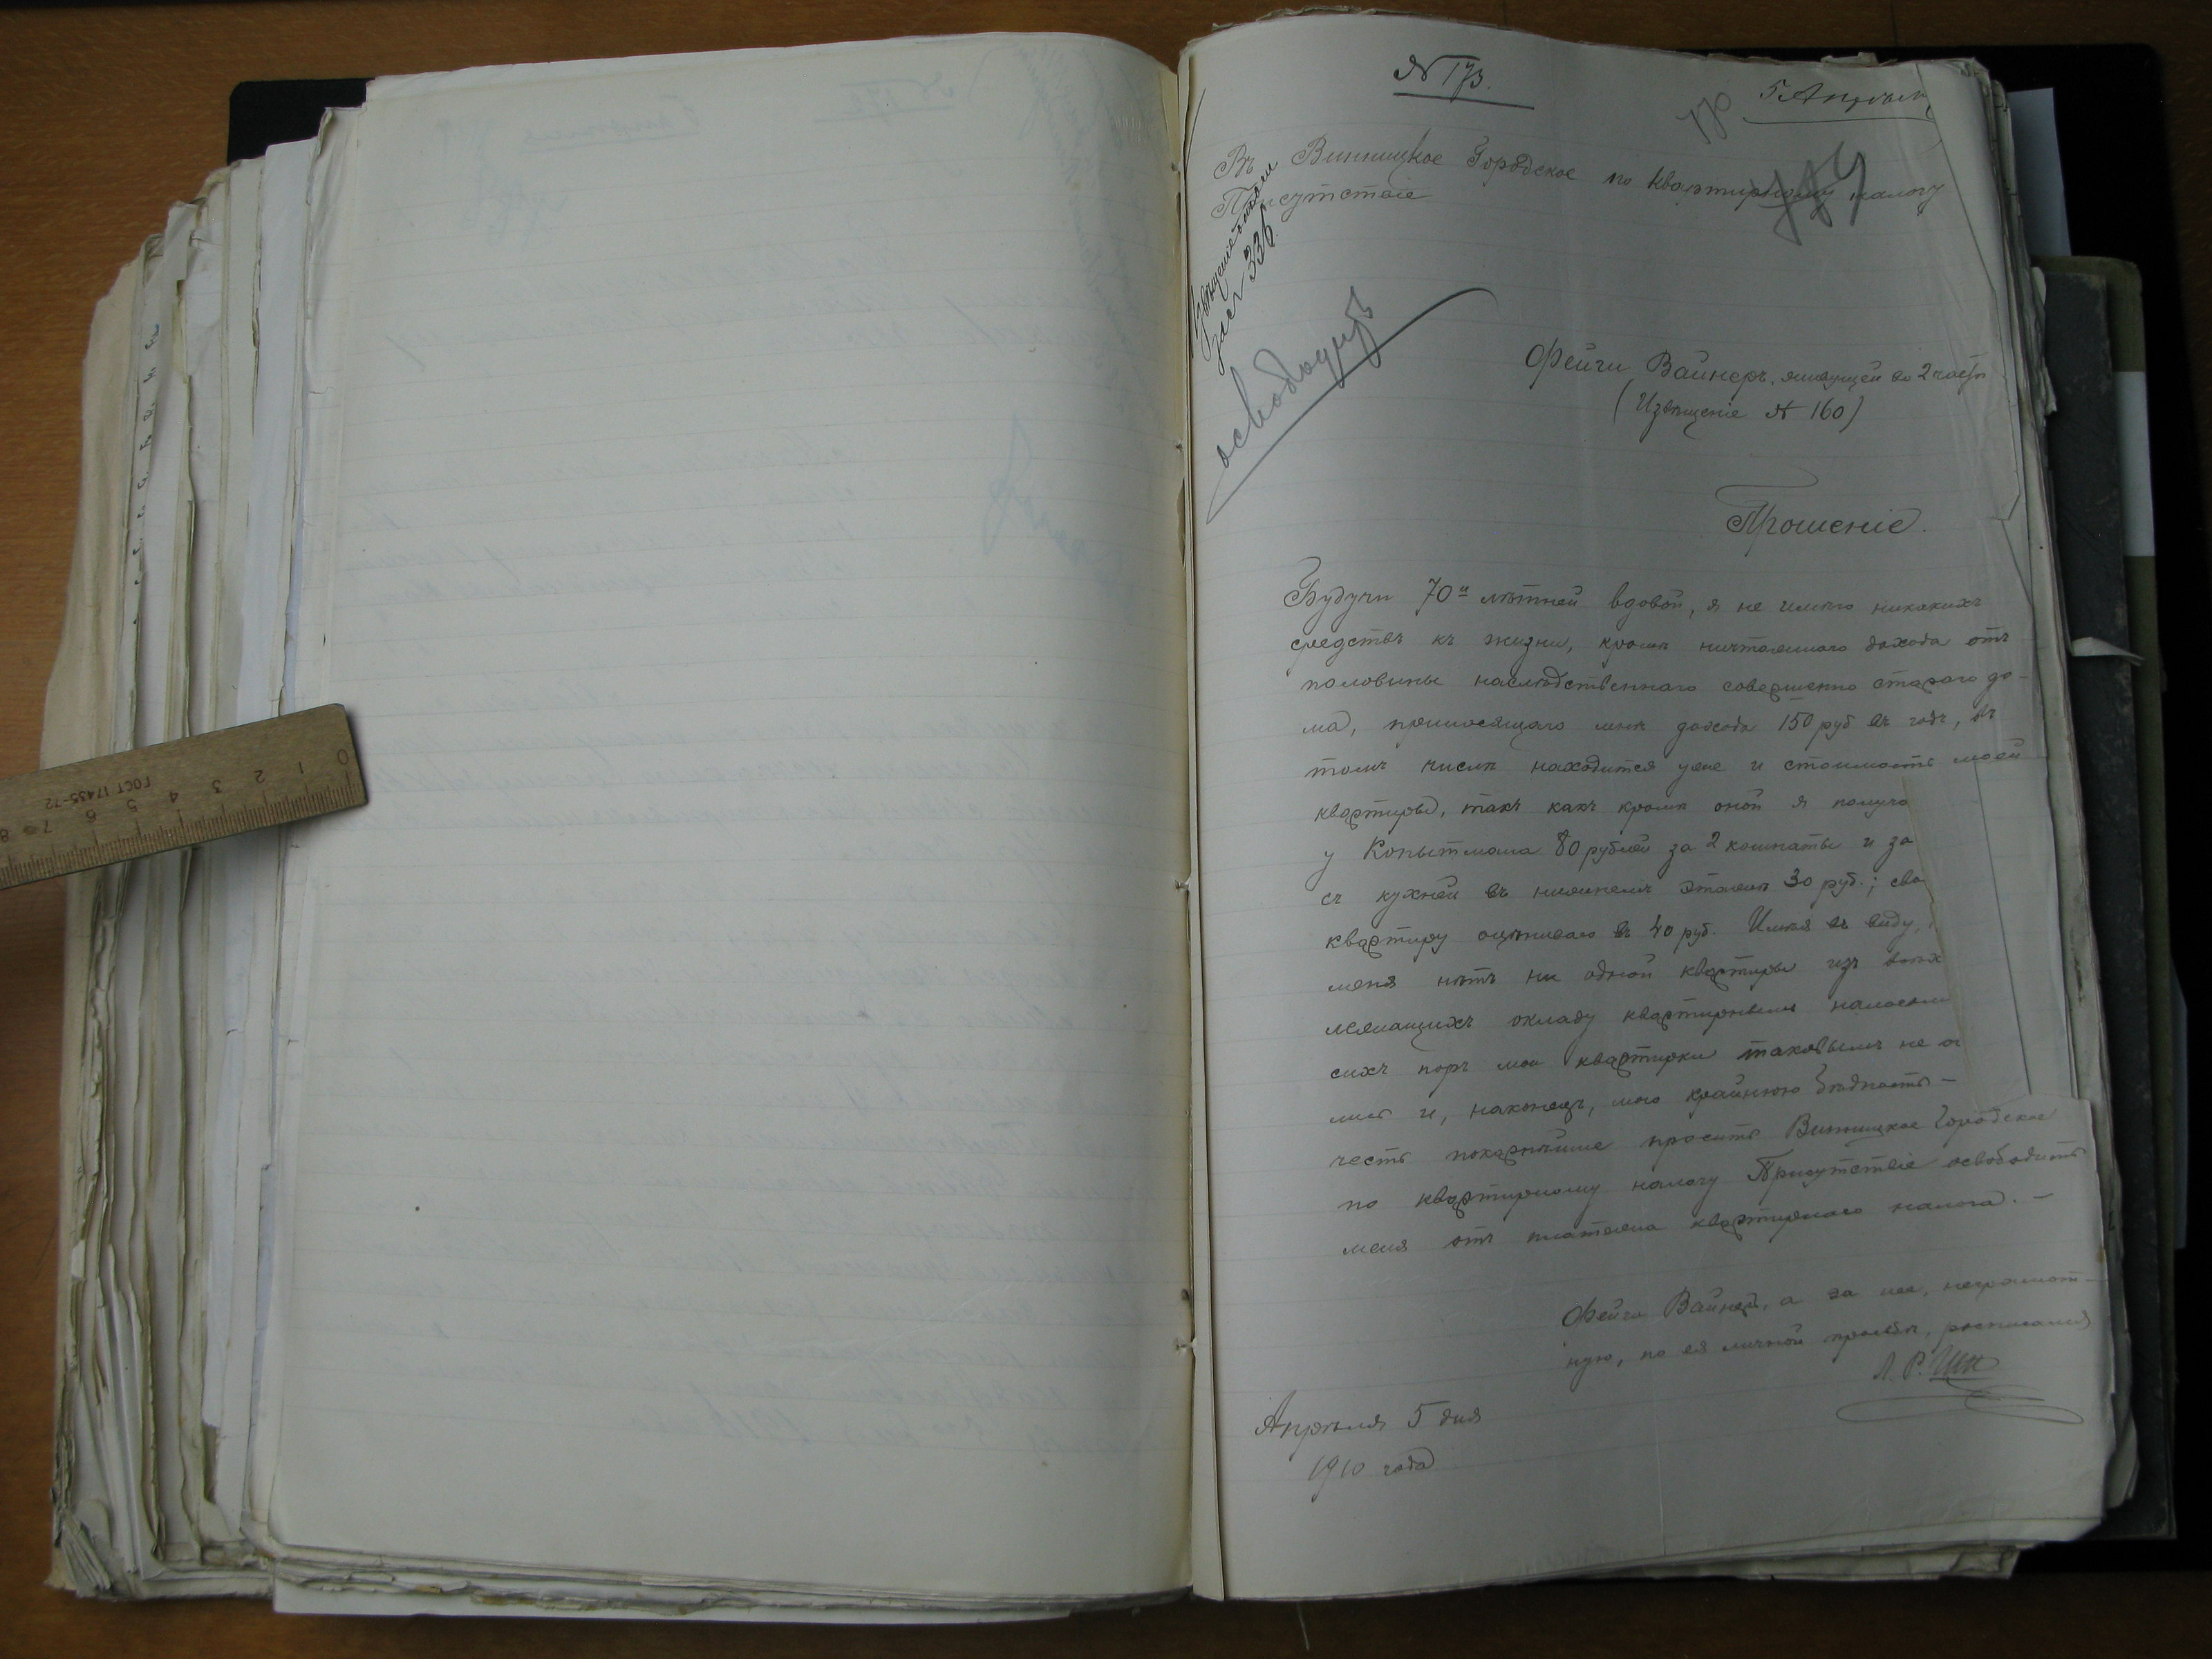 № 173.
5 Апрѣля
Въ Винницкое Городское по квартирному налогу
Присутствіе
Извѣщеніе
за № 336
освободить
Фейги Вайнеръ, живущей во 2 части
(Извѣщеніе № 160)
Прошеніе.
Будучи 70и лѣтней вдовой, я не имѣю никакихъ
средствъ къ жизни, кромѣ ничтожнаго дохода отъ
половины наслѣдственнаго совершенно стараго до-
ма, приносящаго мнѣ дохода 150 руб въ годъ, въ
томъ числѣ находится уже и стоимость моей
квартиры, такъ какъ кромѣ оной я получа
у Копытмана 80 рублей за 2 комнаты и за
съ кухней въ нижнемъ этажѣ 30 руб.; сво
квартиру оцѣниваю въ 40 руб. Имѣя въ виду,
меня нѣтъ ни одной квартиры изъ
лежащихъ окладу квартирнымъ налогом
сихъ поръ мои квартирки таковымъ не о
лись и, наконецъ, мою крайнюю бѣдность -
честь покорнѣйше просить Винницкое Городское
по квартирному налогу Присутствіе освободить
меня отъ платежа квартирнаго налога. -
Фейга Вайнеръ, а за нее, неграмот-
ную, по ея личной просьбѣ, расписался
Л. Р.
Апрѣля 5 дня
1910 года
0 1 2 3 4 5 6 7 8
ГОСТ 17435-72